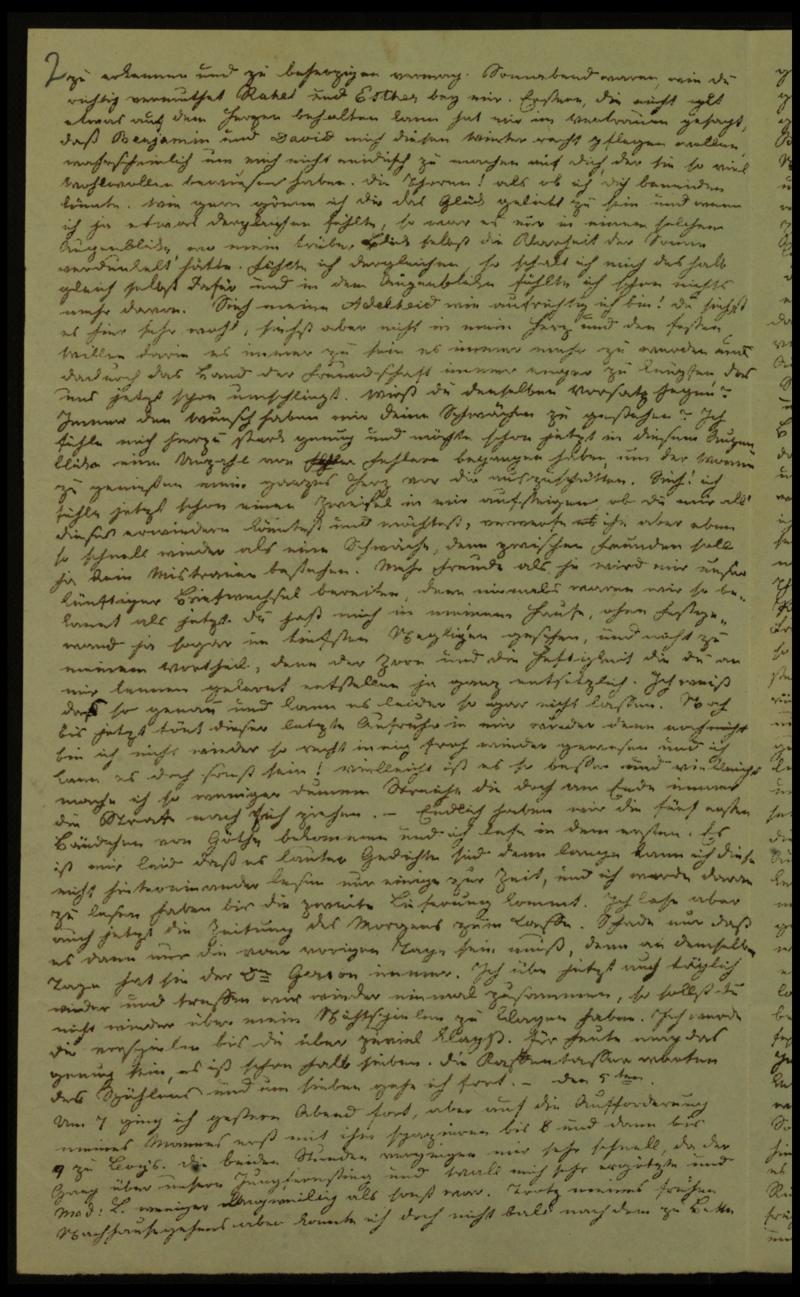 2
zu erkennen und zu beherzigen vermag. Sonnabend waren, wie du
richtig vermuthet Rahel und Esther bey mir. Erstere, die nicht gut
etwas auf dem Herzen behalten kann hat mir im Vertrauen gesagt,
daß Benjamin und David mich diesen Winter recht pflegen wollen
wahrscheinlich um mich nicht neidisch zu machen auf dich, der sie so viel
Wohlwollen bewiesen haben. Die Thoren! als ob ich dich beneiden
könnte. Wie gern gönne ich dir das Glück geliebt zu sein und wenn
ich ja etwas dergleichen fühlte, so war es nur in einem solchen
Augenblick, wo mein trüber Blick selbst die Klarheit der Sonne
verdunkelt hätte. Fühlte ich dergleichen so schalt ich mich deshalb
gleich selbst dafür und in dem Augenblicke fühlte ich schon nichts
mehr davon. Sieh meine Adelheid wie aufrichtig ich bin! Du siehst
es hier sehr wohl, siehst aber nicht in mein Herz und den festen
Willen darin es immer zu sein es immer mehr zu werden und
dadurch das Band der Freundschaft immer enger zu knüpfen das
uns jetzt schon umschlingt. Wirst du denselben Vorsatz hegen?
Immer den Wunsch haben mir deine Schwächen zu gestehen? Ich
fühle mich hierzu stark genug und möchte schon jetzt in diesem Augen
blicke eine Anzahl von Fehlern begangen haben, um der Wonne
zu genießen mein ganzes Herz vor dir auszuschütten. Sieh! ich
fühle jetzt schon einen Zweifel in mir aufsteigen ob du mir all'
dieses erwiedern könntest und möchtest, verwerfe ihn aber eben
so schnell wieder als eine Schwäche, denn zwischen Freunden soll
ja kein Mistrauen bestehen. Mehr Freude als je wird mir unser
künftiger Briefwechsel bereiten, denn niemals waren wir so be-
kannt als jetzt. Du hast mich in meinem Hause, ohne Festge-
wand ja sogar im tiefsten Negligée gesehen, und nicht zu
meinem Vortheil, denn der Zorn und die Heftigkeit die du an
mir kennen gelernt entstellen ja ganz entsetzlich. Ich weiß
das so genau und kann es leider so gar nicht lassen. Noch
bis jetzt tönt dieser letzte Aufruhr in mir wieder denn noch
bin ich nicht wieder so recht innig froh wieder gewesen und ich
kann es doch sonst sein! Vielleicht ist es so besser und vielleicht
mache ich so weniger dumme Streiche die doch am Ende immer
die Strafe nach sich ziehen. – Endlich haben wir die fünf ersten
Bändchen von Göthe bekommen und ich lese in dem ersten. Es
ist mir leid daß es lauter Gedichte sind denn lange kann ich diese
nicht hintereinander lesen nur einige zur Zeit, und ich werde daran
zu lesen haben bis die zweite Lieferung kommt. Ich lese aber
auch jetzt die Zeitung des Morgens zum Kaffee. Schade nur daß
es dann nur die vom vorigen Tage sein muß, denn an demselben
Tage hat sie der Dr Gerson immer. Ich übe jetzt auch täglich
wieder und treffen wir wieder einmal zusammen, so sollst du
nicht wieder über mein Nichtspielen zu klagen haben. Ich werde
dir vorspielen bis du über zuviel klagst. Für heute mag das
genug sein, es ist schon halb sieben. Die Kaffeetassen warten
des Spühlens und um sieben gehe ich fort. – den 5ten.
Um 7 ging ich gestern Abend fort, aber auf die Aufforderung
meines Mannes erst mit ihm spazieren bis 8 und dann bis
9 zu Louis. Die beiden Stunden vergingen mir sehr schnell, da der
Gang über unsern Jungfernstieg und Wall mich sehr ergötzte und
Mad: L. weniger langweilig als sonst war. Trotz meines frühen
Nachhausegehens aber konnte ich doch nicht bald nach dem zu Bette